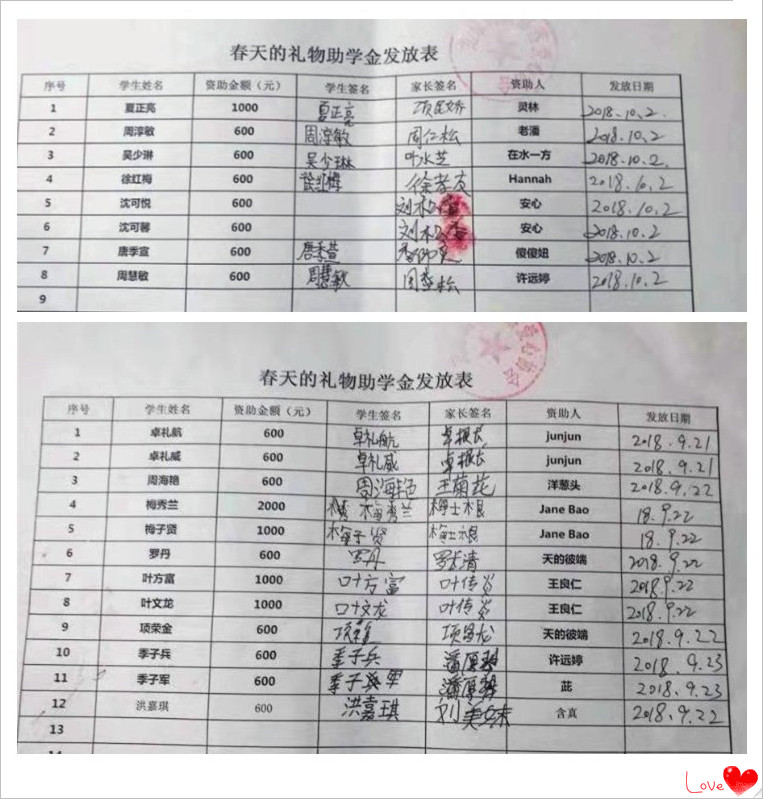 春天的礼物助学金发放表
序号 学生姓名 资助金额（元） 学生签名 家长签名 资助人 发放日期
1 夏正亮 1000 夏正亮 灵林 2018.10.2
2 周淳敏 600 周淳敏 周仁松 老潘 2018.10.2
3 吴少淋 600 吴少琳 叶水芝 在水一方 2018.10.2
4 徐红梅 600 徐红梅 Hannah 2018.10.2
5 沈可悦 600 安心 2018.10.2
6 沈可馨 600 安心 2018.10.2
7 唐季宣 600 唐季萱 傻傻妞 2018.10.2
8 周慧敏 600 周慧敏 许远婷 2018.10.2
9
春天的礼物助学金发放表
序号 学生姓名 资助金额（元） 学生签名 家长签名 资助人 发放日期
1 卓礼航 600 卓礼航 卓振长 junjun 2018.9.21
2 卓礼威 600 卓礼威 卓振长 junjun 2018.9.21
3 周海艳 600 周海艳 王菊花 洋葱头 2018.9.22
4 梅秀兰 2000 梅秀兰 梅士根 Jane Bao 18.9.22
5 梅子贤 1000 梅子贤 梅士根 Jane Bao 18.9.22
6 罗丹 600 罗丹 天的彼端 2018.9.22
7 叶方富 1000 叶方富 王良仁 2018.9.22
8 叶文龙 1000 叶文龙 王良仁 2018.9.22
9 项荣金 600 天的彼端 2018.9.22
10 季子兵 600 季子兵 许远婷 2018.9.23
11 季子军 600 季子军 茈 2018.9.23
12 洪嘉琪 600 洪嘉琪 含真 2018.9.22
13
Love